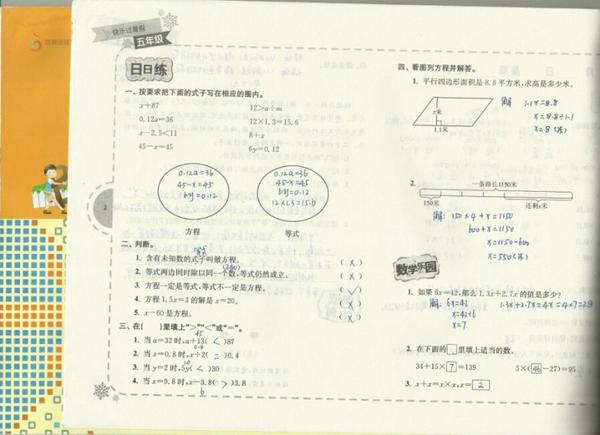 快乐过暑假
五年级
日日练
一、按要求把下面的式子写在相应的圈内。
x+87
12>a÷m
0.12a=36
12×1.3=15.6
x-2.5<11
8+x
45-x=45
6y=0.12
0.12a=36
45-x=45
6y=0.12
0.12a=36
45-x=45
6y=0.12
12×1.3=15.6
方程
等式
2
二、判断。
1. 含有未知数的式子叫做方程。 (×)
2. 等式两边同时除以同一个数,等式仍然成立。 (×)
3. 方程一定是等式,等式不一定是方程。 (✓)
4. 方程1.5x=3的解是x=20。 (×)
5. x-60是方程。 (×)
三、在( )里填上“>”“<”或“=”。
45
1. 当a=32时,a+13(<)87
2. 当x=0.8时,x÷2(=)0.4
3. 当y=2时,5y(<)30
4. 当x=9.8时,x-3.8(>)3.8
6
四、看图列方程并解答。
1. 平行四边形面积是8.8平方米,求高是多少米。
x米
1.1米
解: 1.1x=8.8
x=8.8÷1.1
x=8(米)
2.
一条路长1150米
150米
还剩x米
解: 150×4+x=1150
600+x=1150
x=1150-600
x=550(米)
数学乐园
1. 如果6x=42,那么1.3x+2.7x的值是多少?
解: 6x=42
x=42÷6
x=7
1.3x+2.7x=4x=4×7=28
2. 在下面的□里填上适当的数。
34+15×7=139
5×(46-27)=95
3. x+x=x×x,x=2